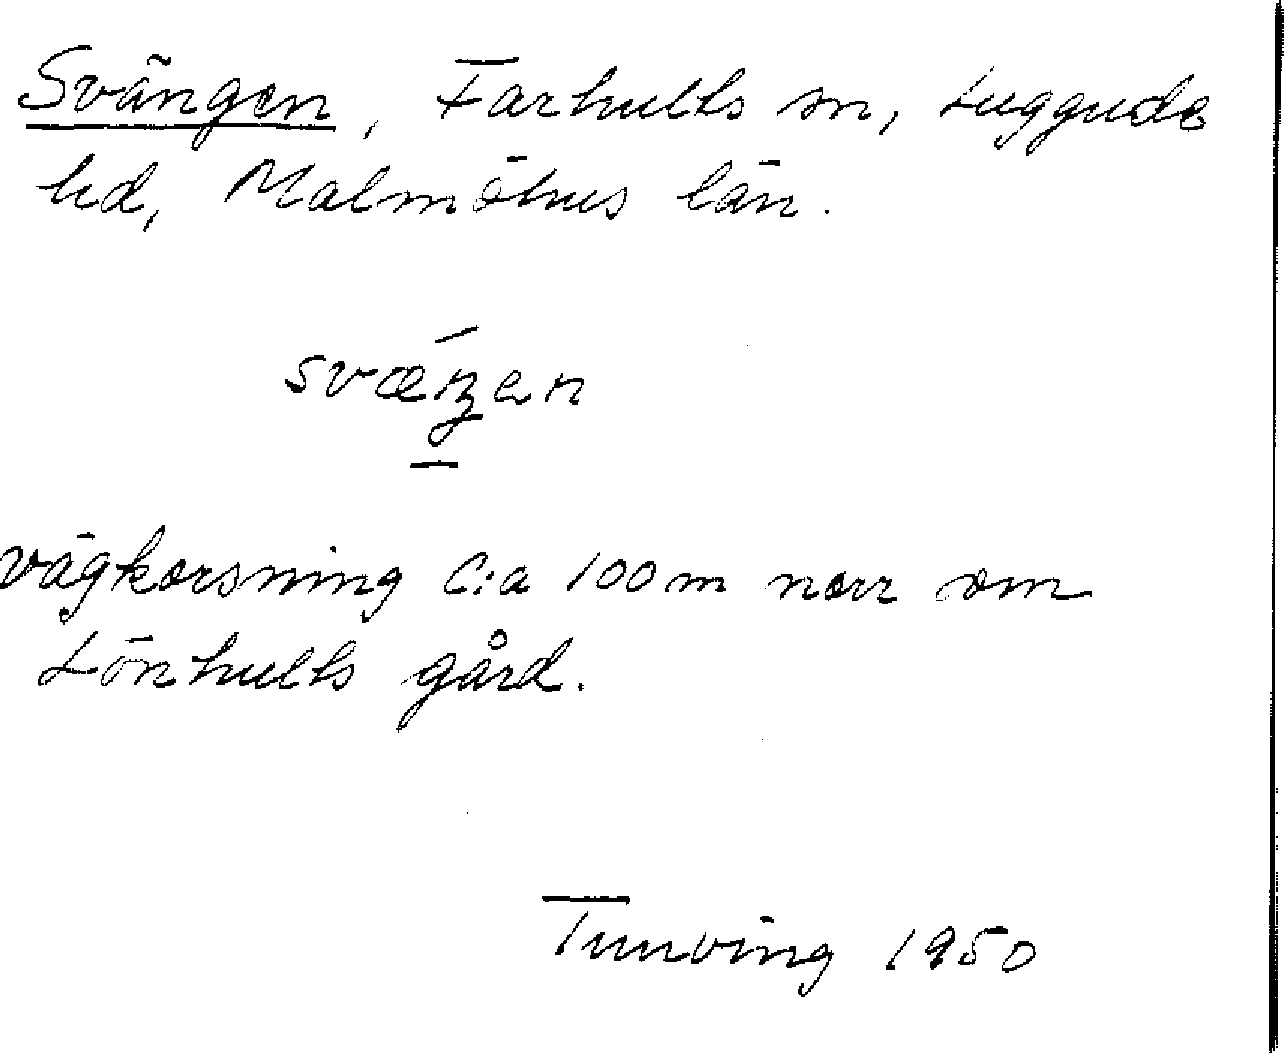 Svängen, Farhults sn, Luggude
hd, Malmöhus län.
svæŋen
vägkorsning c:a 100 m norr om
Lönhults gård.
Tunving 1950